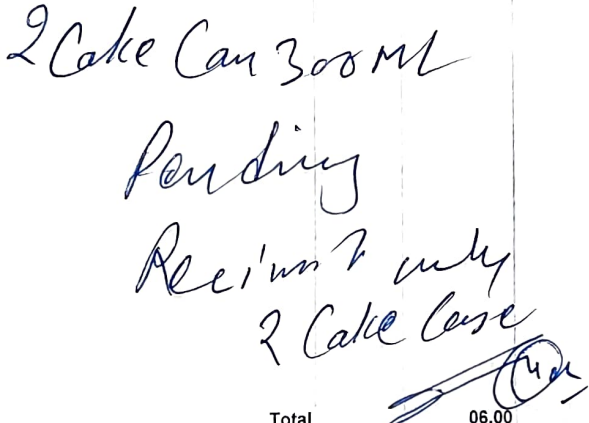 2 Coke Can 300 ML
Pending
only
2 Coke Case
Total 06.00